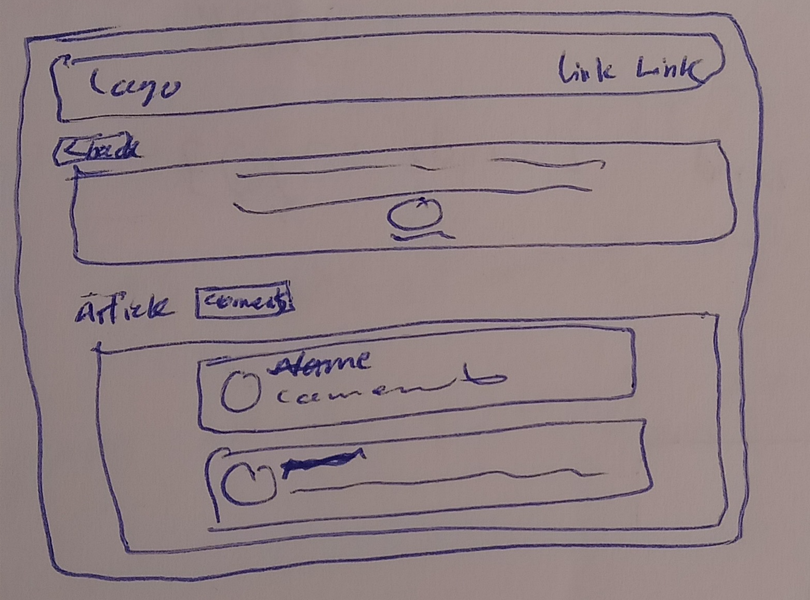 Logo Link Link
< back
Article Coments
Name
Comment